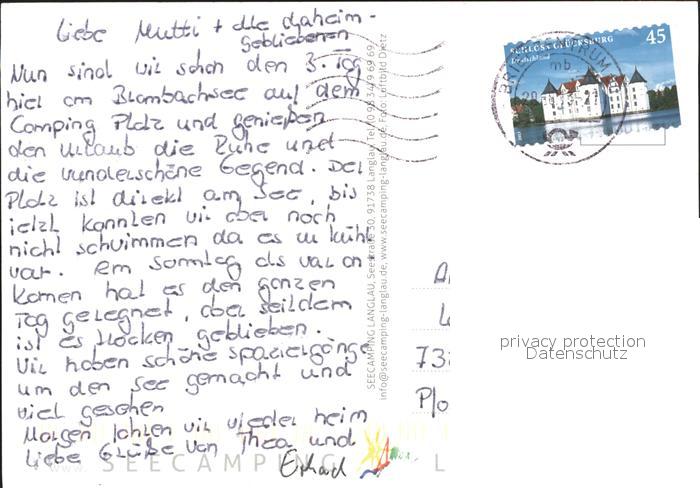 Liebe Mutti + die daheim-
gebliebenen
Nun sind wir schon den 3. Tag
hier am Brombachsee auf dem
Camping Platz und genießen
den Urlaub die Ruhe und
die wunderschöne Gegend. Der
Platz ist direkt am See, bis
jetzt konnten wir aber noch
nicht schwimmen da es zu kühl
war. Am Sonntag als wir an-
kamen hat es den ganzen
Tag geregnet, aber seitdem
ist es trocken geblieben.
Wir haben schöne Spaziergänge
um den See gemacht und
viel gesehen
Morgen fahren wir wieder heim
Liebe Grüße von Thea und
Erhard
SEECAMPING L
SEECAMPING LANGLAU, Seestraße 30, 91738 Langlau, Tel. (0 98 34) 9 69 69
info@seecamping-langlau.de, www.seecamping-langlau.de, Foto: Luftbild Dietz
SCHLOSS GLÜCKSBURG
Deutschland
45
BRIEFZENTRUM
mb
73
privacy protection
Datenschutz